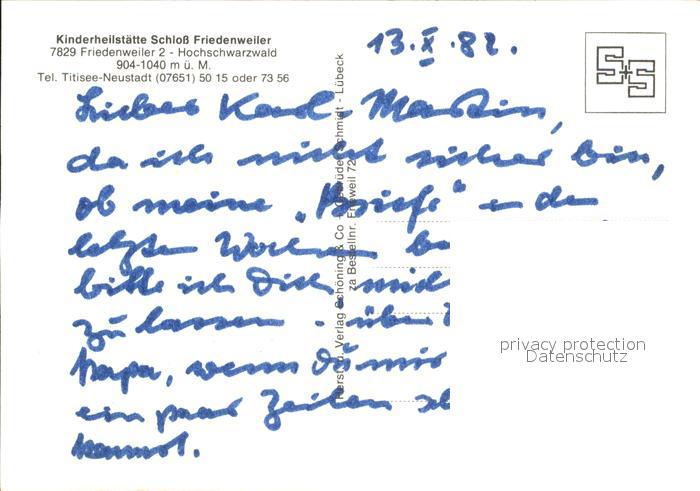 Kinderheilstätte Schloß Friedenweiler
7829 Friedenweiler 2 - Hochschwarzwald
904-1040 m ü. M.
Tel. Titisee-Neustadt (07651) 50 15 oder 73 56
13.X.82.
S+S
Lieber Karl Martin,
da ich nicht sicher bin,
ob meine „Briefe“ in den
letzten Wochen
bitte ich Dich, mich
zu lassen - über
Papa, wenn Du mir
ein paar Zeilen
kannst.
Herst. u. Verlag Schöning & Co + Gebrüder Schmidt - Lübeck
za Bestellnr. Friweil 72
privacy protection
Datenschutz